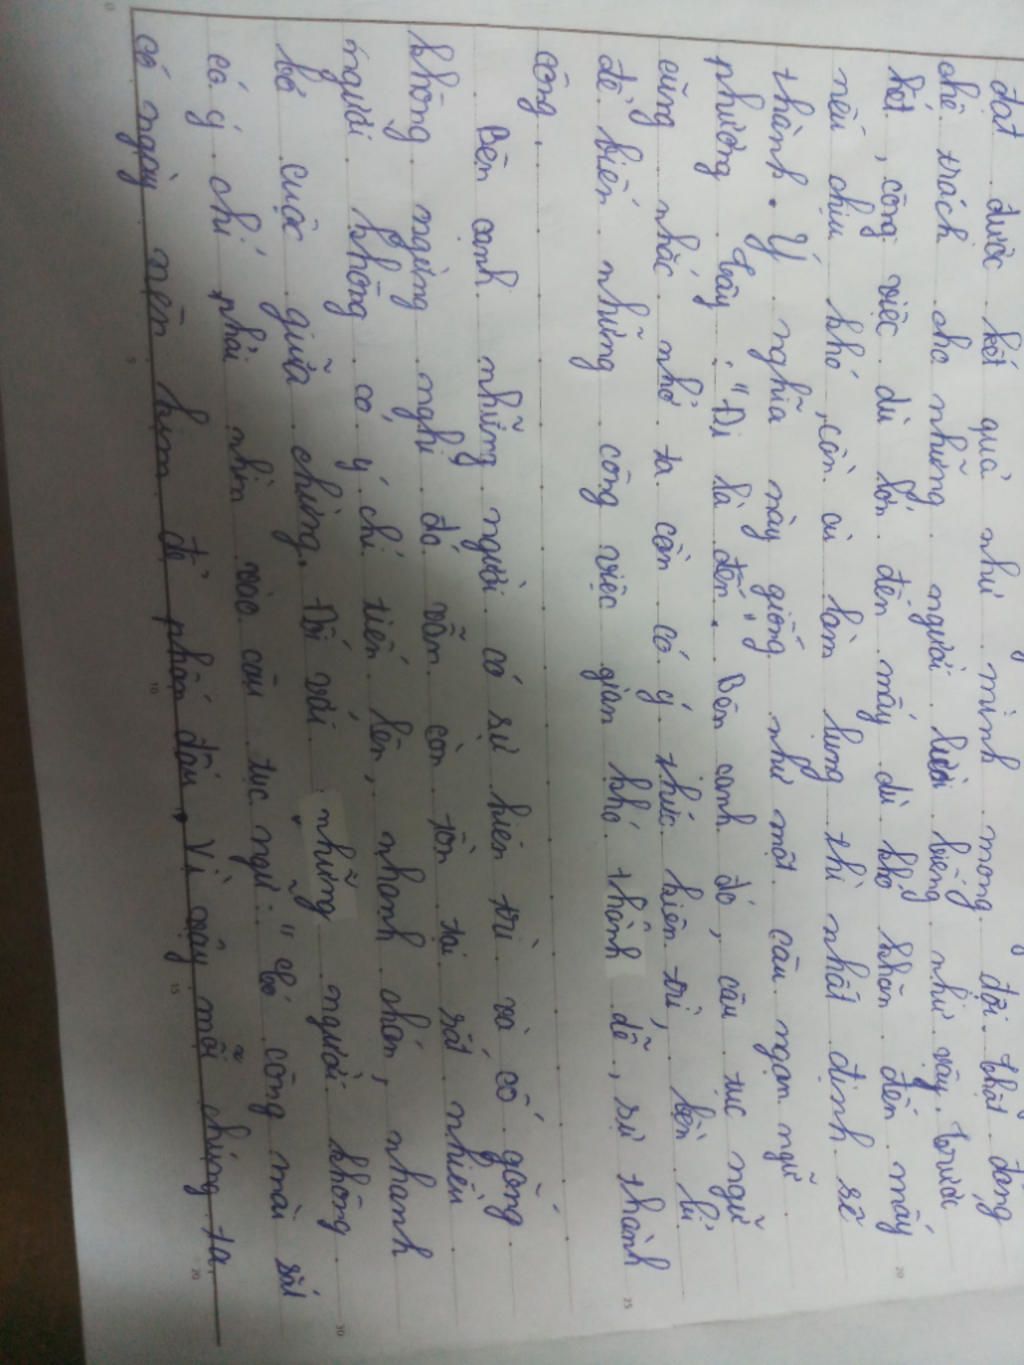 đạt được kết quả như mình mong đợi. Thật đáng
chê trách cho những người lười biếng như vậy. Trước
hết, công việc dù lớn đến mấy dù khó khăn đến mấy
nếu chịu khó, cần cù làm lụng thì nhất định sẽ
thành. Ý nghĩa này giống như một câu ngạn ngữ
phương Tây: "Đi là đến". Bên cạnh đó, câu tục ngữ
cũng nhắc nhở ta cần có ý thức kiên trì, bền bỉ
để biến những công việc gian khó thành dễ, sự thành
công.
Bên cạnh những người có sự kiên trì và cố gắng
không ngừng nghỉ đó vẫn còn tồn tại rất nhiều
người không có ý chí tiến lên, nhanh chán, nhanh
bỏ cuộc giữa chừng. Đối với những người không
có ý chí phải nhìn vào câu tục ngữ: "Có công mài sắt
có ngày nên kim để phấn đấu. Vì vậy mỗi chúng ta